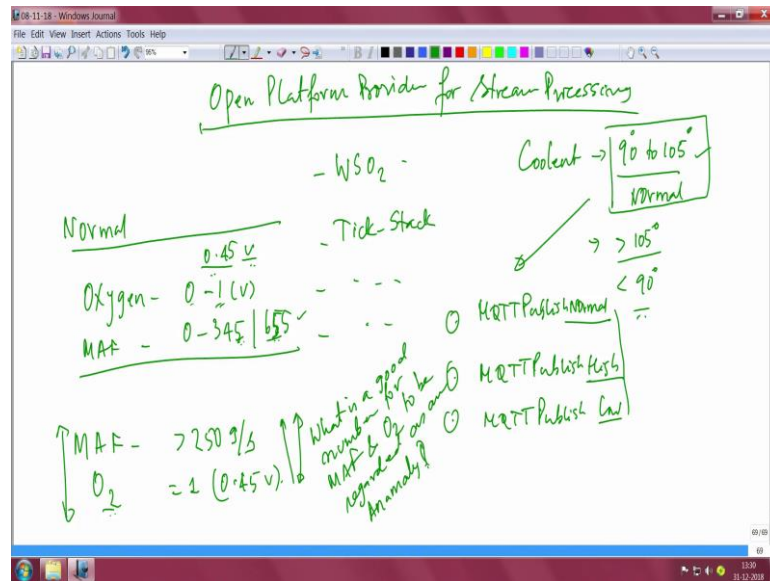 08-11-18 - Windows Journal
File Edit View Insert Actions Tools Help
Open Platform Provider for Stream Processing
- WSO2 -
Coolent → 90° to 105°
Normal
Normal
- Tick-Stack
0.45 V
> 105°
< 90°
Oxygen - 0 - 1 (V)
MAF - 0 - 345 | 655
MQTTPublishNormal
MQTTPublish High
MQTTPublish Low
MAF - > 250 g/s
O2 = 1 (0.45 V)
What is a good
number for
MAF & O2 to be
regarded as an
Anamaly?
69/69
69
13:30
31-12-2018